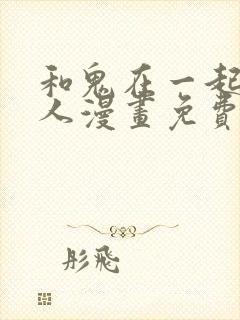 和鬼在一起
人漫畫免費
彤飛